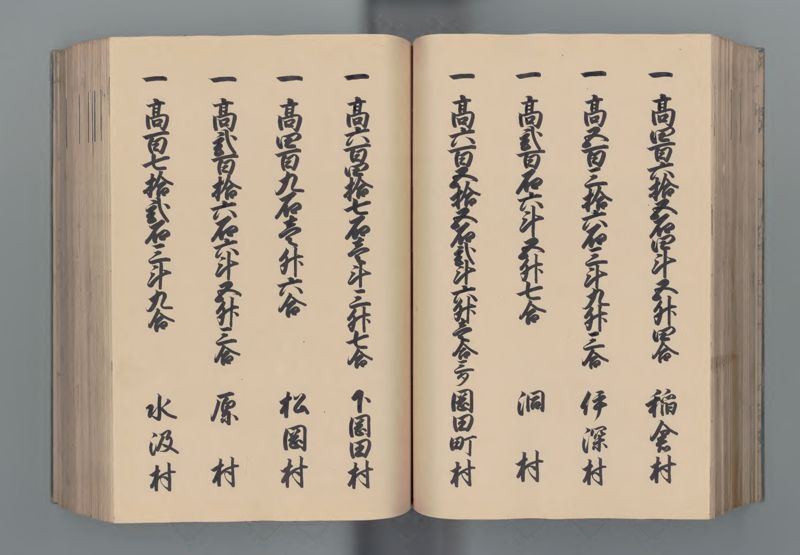 一 髙四百六拾五石四斗五升四合 稲倉村
一 髙五百三拾六石三斗九升三合 伊深村
一 髙貳百石六斗五升七合 洞村
一 髙六百五拾五石貳斗六升壱合三勺 岡田町村
一 髙六百四拾七石壱斗三升七合 下岡田村
一 髙四百九石壱升六合 松岡村
一 髙貳百拾六石六斗五升三合 原村
一 髙百七拾貳石三斗九合 水汲村